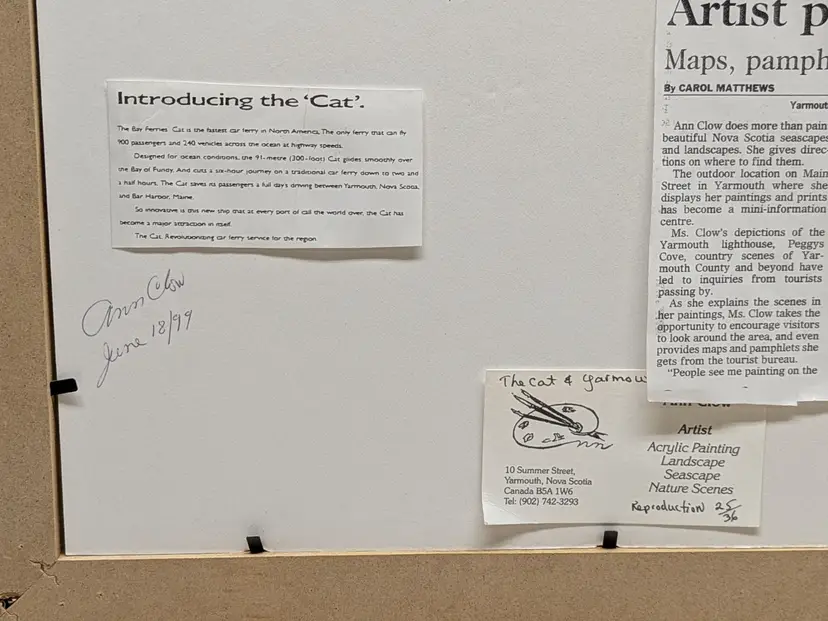 Introducing the 'Cat'.
The Bay Ferries' Cat is the fastest car ferry in North America. The only ferry that can fly
900 passengers and 240 vehicles across the ocean at highway speeds.
Designed for ocean conditions, the 91-metre (300-foot) Cat glides smoothly over
the Bay of Fundy. And cuts a six-hour journey on a traditional car ferry down to two and
a half hours. The Cat saves its passengers a full day's driving between Yarmouth, Nova Scotia,
and Bar Harbor, Maine.
So innovative is this new ship that at every port of call the world over, the Cat has
become a major attraction in itself.
The Cat. Revolutionizing car ferry service for the region.
Ann Clow
June 18/99
Artist p
Maps, pamph
By CAROL MATTHEWS
Yarmout
Ann Clow does more than pain
beautiful Nova Scotia seascapes
and landscapes. She gives direc-
tions on where to find them.
The outdoor location on Main
Street in Yarmouth where she
displays her paintings and prints
has become a mini-information
centre.
Ms. Clow's depictions of the
Yarmouth lighthouse, Peggys
Cove, country scenes of Yar-
mouth County and beyond have
led to inquiries from tourists
passing by.
As she explains the scenes in
her paintings, Ms. Clow takes the
opportunity to encourage visitors
to look around the area, and even
provides maps and pamphlets she
gets from the tourist bureau.
"People see me painting on the
The Cat & Yarmou
Ann Clow
Artist
Acrylic Painting
Landscape
Seascape
Nature Scenes
10 Summer Street,
Yarmouth, Nova Scotia
Canada B5A 1W6
Tel: (902) 742-3293
Reproduction 25/36